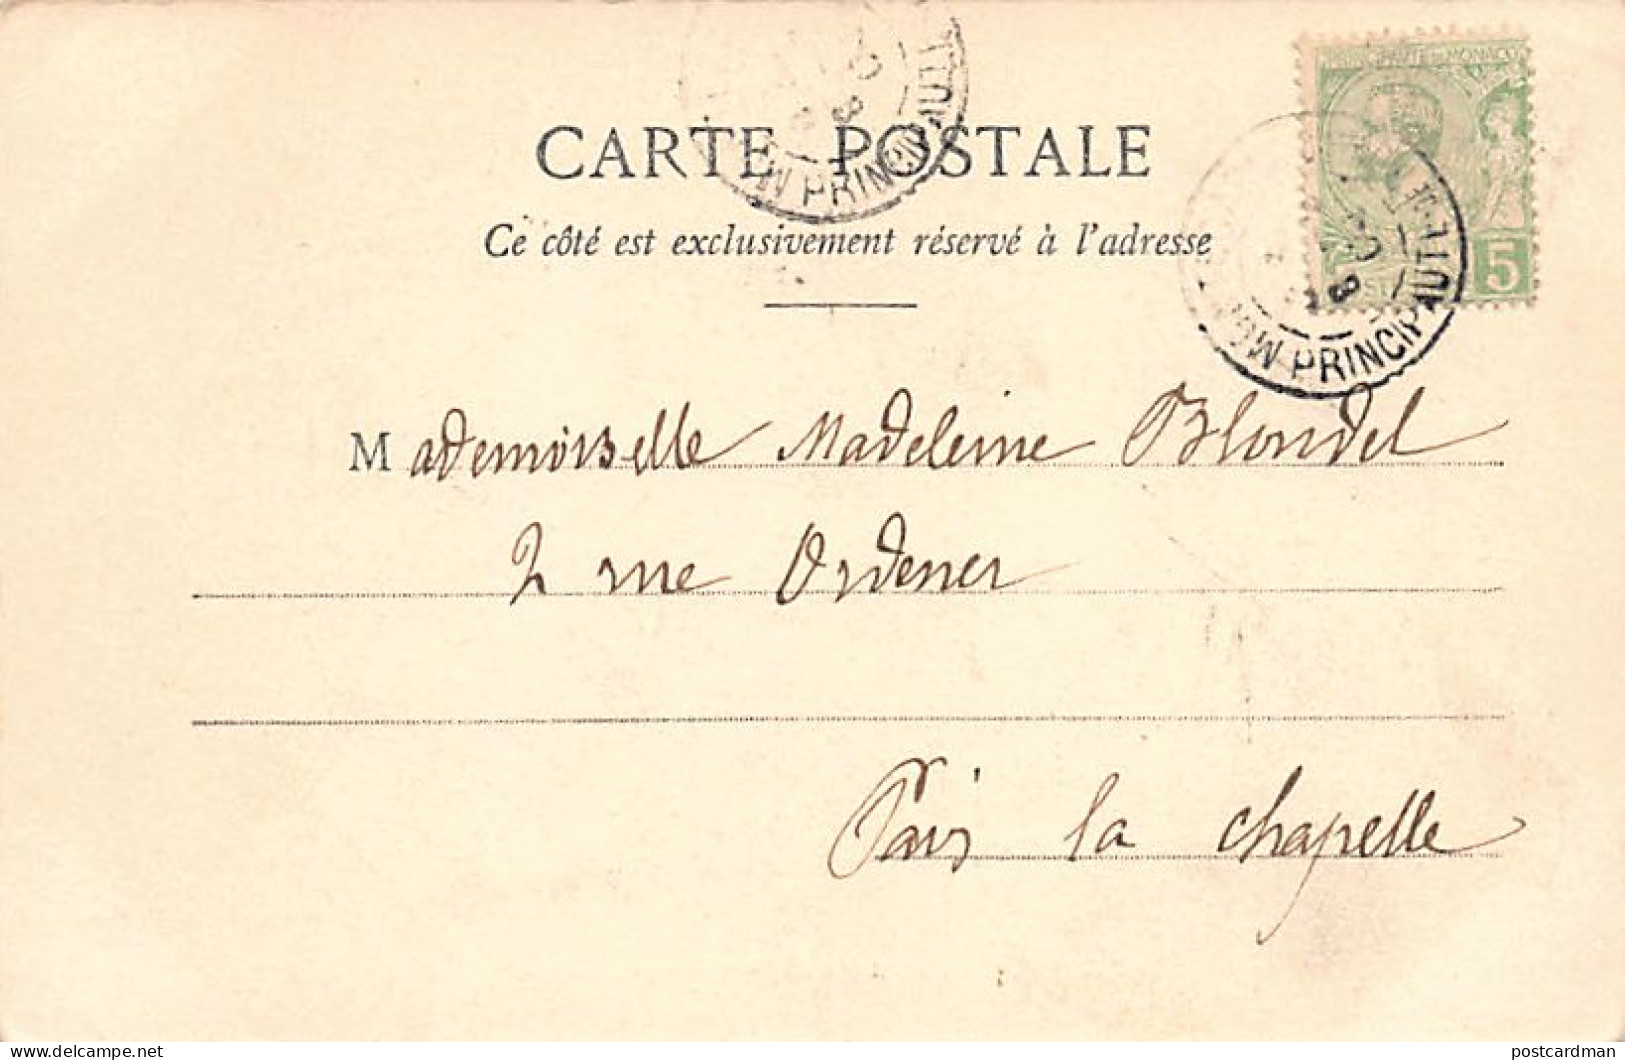 CARTE POSTALE
Ce côté est exclusivement réservé à l'adresse
PRINCIPAUTÉ DE MONACO
5
PRINCIPAUTÉ
PRINCIPAUTÉ
Mademoiselle Madeleine Blondel
2 rue Ordener
Paris la chapelle
postcardman